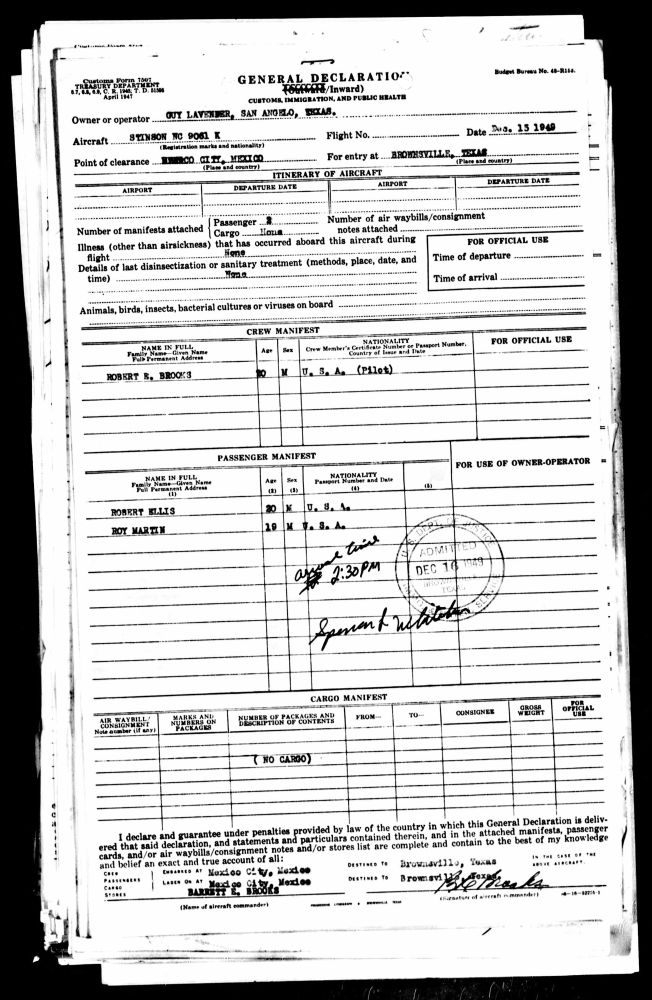 Customs Form 7507
TREASURY DEPARTMENT
April 1947
GENERAL DECLARATION
(Outward/Inward)
CUSTOMS, IMMIGRATION, AND PUBLIC HEALTH
Budget Bureau No.
Owner or operator GUY LAVENDER, SAN ANGELO, TEXAS.
Aircraft STINSON NC 9061 K Flight No. Date Dec. 15 1949
(Registration marks and nationality)
Point of clearance CITY, MEXICO For entry at BROWNSVILLE, TEXAS
(Place and country) (Place and country)
ITINERARY OF AIRCRAFT
AIRPORT DEPARTURE DATE AIRPORT DEPARTURE DATE
Number of manifests attached Passenger 2 Number of air waybills/consignment
Cargo None notes attached
Illness (other than airsickness) that has occurred aboard this aircraft during
flight None
FOR OFFICIAL USE
Details of last disinsectization or sanitary treatment (methods, place, date, and
time) None
Time of departure
Time of arrival
Animals, birds, insects, bacterial cultures or viruses on board
CREW MANIFEST
NAME IN FULL
Family Name—Given Name
Full Permanent Address
Age Sex
NATIONALITY
Crew Member's Certificate Number or Passport Number,
Country of Issue and Date
FOR OFFICIAL USE
ROBERT E. BROOKS 20 M U. S. A. (Pilot)
PASSENGER MANIFEST
FOR USE OF OWNER-OPERATOR
NAME IN FULL
Family Name—Given Name
Full Permanent Address
(1)
Age
(2)
Sex
(3)
NATIONALITY
Passport Number and Date
(4)
(5)
ROBERT ELLIS 20 M U. S. A.
ROY MARTIN 19 M U. S. A.
arrival time
2:30 PM
U. S. DEPT. OF JUSTICE
ADMITTED
DEC 16 1949
CARGO MANIFEST
AIR WAYBILL/
CONSIGNMENT
Note number (if any)
MARKS AND
NUMBERS ON
PACKAGES
NUMBER OF PACKAGES AND
DESCRIPTION OF CONTENTS
FROM—
TO—
CONSIGNEE
GROSS
WEIGHT
FOR
OFFICIAL
USE
( NO CARGO)
I declare and guarantee under penalties provided by law of the country in which this General Declaration is deliv-
ered that said declaration, and statements and particulars contained therein, and in the attached manifests, passenger
cards, and/or air waybills/consignment notes and/or stores list are complete and contain to the best of my knowledge
and belief an exact and true account of all:
CREW
PASSENGERS
CARGO
STORES
EMBARKED AT Mexico City, Mexico DESTINED TO Brownsville, Texas
LADEN ON AT Mexico City, Mexico DESTINED TO Brownsville, Texas
IN THE CASE OF THE
ABOVE AIRCRAFT.
BARRETT E. BROOKS
(Name of aircraft commander) (Signature of aircraft commander)